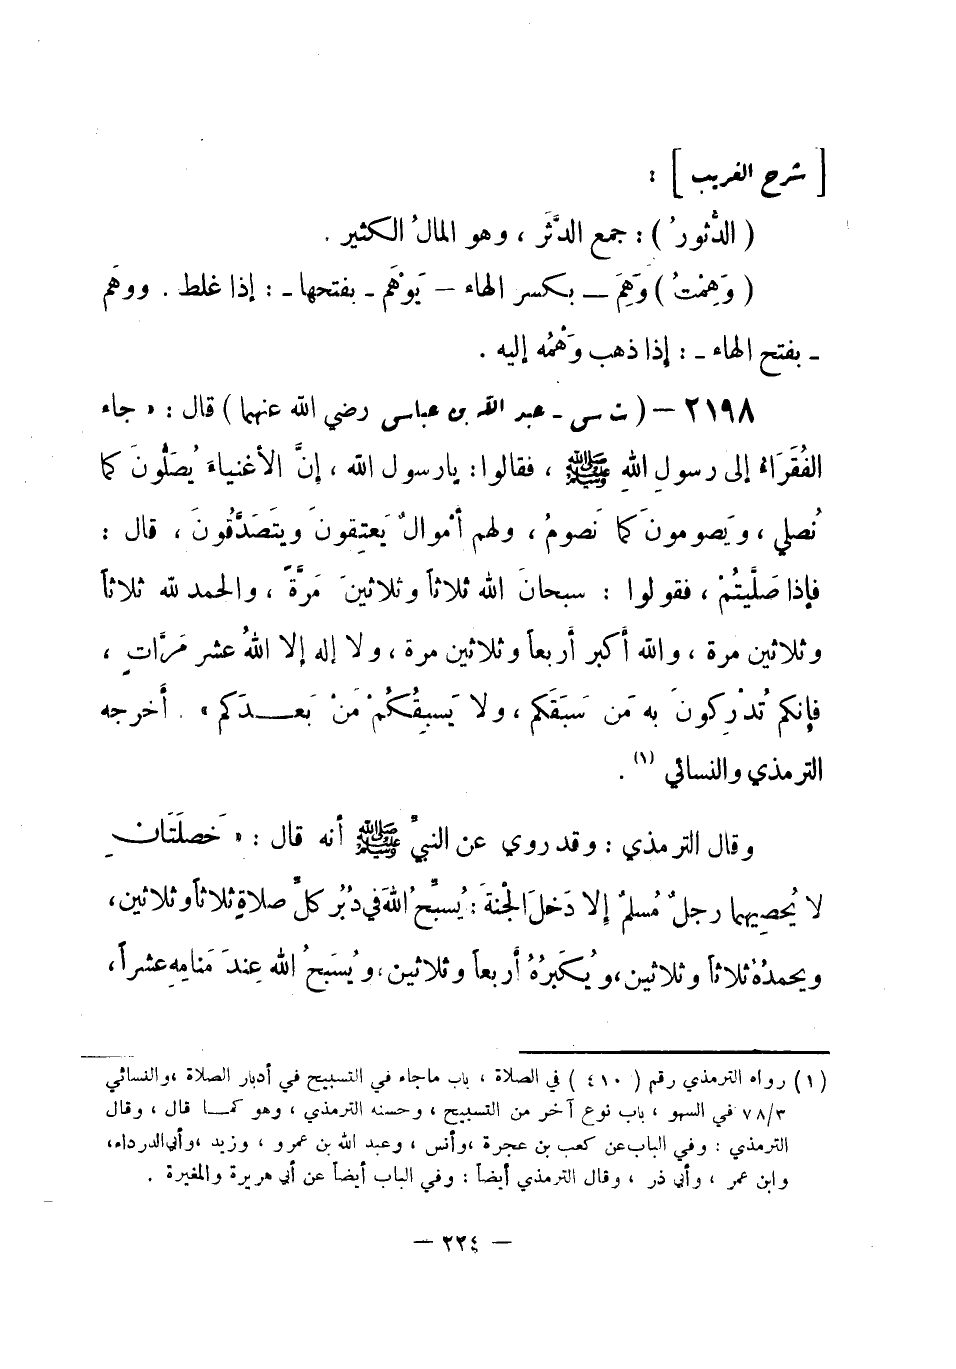 [ شرح الغريب ] :
( الدُّثورُ ) : جمع الدَّثَر ، وهو المالُ الكثير .
( وَهِمْتُ ) وَهِمَ — بكسر الهاء — يَوْهَم - بفتحها - : إذا غلط . ووهَم
- بفتح الهاء - : إذا ذهب وَهْمُه إليه .
٢١٩٨ - ( ت سى - عبد الله بن عباسى رضي الله عنهما ) قال : « جاء
الفُقَرَاءُ إلى رسولِ اللهِ ﷺ ، فقالوا : يارسول الله ، إنَّ الأغنياءَ يُصَلُّونَ كما
نُصلي ، ويَصومونَ كما نَصومُ ، ولهم أمْوالٌ يَعتِقونَ ويتَصَدَّقُونَ ، قال :
فإذا صَلَّيتُمْ ، فقولوا : سبحانَ الله ثلاثاً وثلاثينَ مَرَّةً ، والحمد لله ثلاثاً
وثلاثين مرة ، والله أكبر أربعاً وثلاثين مرة ، ولا إله إلا اللهُ عشر مَرَّاتٍ ،
فإنكم تُدْرِكونَ به مَن سَبَقَكم ، ولا يَسبِقُكُمْ مَنْ بَعـدَكم » . أخرجه
الترمذي والنسائي (١) .
وقال الترمذي : وقد روي عن النبيِّ ﷺ أنه قال : « خَصلَتَانِ
لا يُحصِيهما رجلٌ مُسلمٌ إلا دَخلَ الجنةَ : يُسبِّحُ اللهَ في دُبُرِ كلِّ صلاةٍ ثلاثاً وثلاثين ،
ويحمدُهُ ثلاثاً وثلاثين ، ويُكَبِّرُهُ أربعاً وثلاثين ، ويُسَبحُ اللهَ عِندَ مَنامِهِ عشراً ،
(١) رواه الترمذي رقم ( ٤١٠ ) في الصلاة ، باب ماجاء في التسبيح في أدبار الصلاة ، والنسائي
٧٨/٣ في السهو ، باب نوع آخر من التسبيح ، وحسنه الترمذي ، وهو كمـا قال ، وقال
الترمذي : وفي الباب عن كعب بن عجرة ، وأنس ، وعبد الله بن عمرو ، وزيد ، وأبي الدرداء ،
وابن عمر ، وأبي ذر ، وقال الترمذي أيضاً : وفي الباب أيضاً عن أبي هريرة والمغيرة .
— ٢٢٤ —